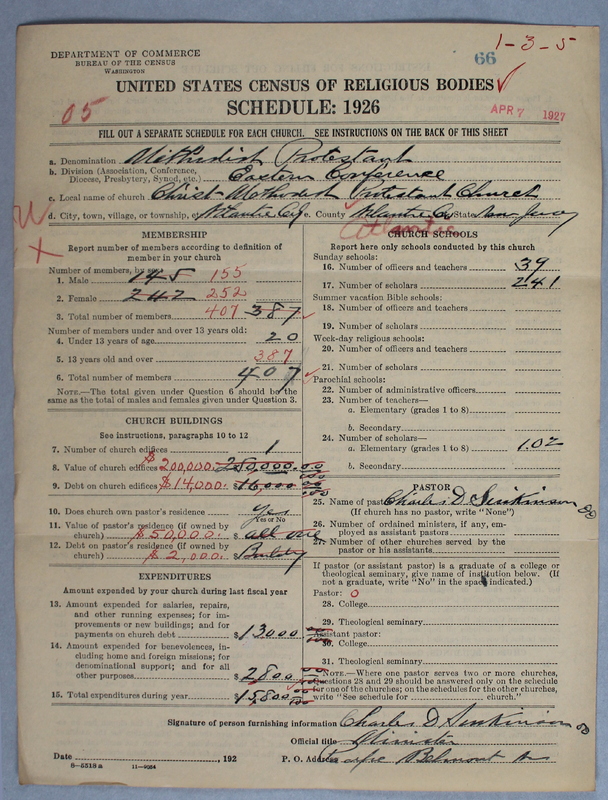 DEPARTMENT OF COMMERCE
BUREAU OF THE CENSUS
WASHINGTON
66
1-3-5
UNITED STATES CENSUS OF RELIGIOUS BODIES
SCHEDULE: 1926
05
APR 7 1927
FILL OUT A SEPARATE SCHEDULE FOR EACH CHURCH. SEE INSTRUCTIONS ON THE BACK OF THIS SHEET
a. Denomination Methodist Protestant
b. Division (Association, Conference, Diocese, Presbytery, Synod, etc.) Eastern Conference
c. Local name of church Christ Methodist Protestant Church
d. City, town, village, or township, Atlantic City e. County Atlantic Co State New Jersey
Atlantic
X
MEMBERSHIP
Report number of members according to definition of member in your church
Number of members, by sex:
1. Male 145 155
2. Female 242 252
3. Total number of members 407 387
Number of members under and over 13 years old:
4. Under 13 years of age 20
5. 13 years old and over 387
6. Total number of members 407
NOTE.—The total given under Question 6 should be the same as the total of males and females given under Question 3.
CHURCH BUILDINGS
See instructions, paragraphs 10 to 12
7. Number of church edifices 1
8. Value of church edifices $200,000. 250,000.00
9. Debt on church edifices $14,000. 16,000
10. Does church own pastor's residence Yes
Yes or No
11. Value of pastor's residence (if owned by church) $50,000. $ all one
12. Debt on pastor's residence (if owned by church) $2,000. $
EXPENDITURES
Amount expended by your church during last fiscal year
13. Amount expended for salaries, repairs, and other running expenses; for improvements or new buildings; and for payments on church debt $13000
14. Amount expended for benevolences, including home and foreign missions; for denominational support; and for all other purposes $2,800
15. Total expenditures during year $15,800
CHURCH SCHOOLS
Report here only schools conducted by this church
Sunday schools:
16. Number of officers and teachers 39
17. Number of scholars 241
Summer vacation Bible schools:
18. Number of officers and teachers
19. Number of scholars
Week-day religious schools:
20. Number of officers and teachers
21. Number of scholars
Parochial schools:
22. Number of administrative officers
23. Number of teachers—
a. Elementary (grades 1 to 8)
b. Secondary
24. Number of scholars—
a. Elementary (grades 1 to 8) 102
b. Secondary
PASTOR
25. Name of pastor Charles D. Sinkinson DD
(If church has no pastor, write "None")
26. Number of ordained ministers, if any, employed as assistant pastors
27. Number of other churches served by the pastor or his assistants
If pastor (or assistant pastor) is a graduate of a college or theological seminary, give name of institution below. (If not a graduate, write "No" in the space indicated.)
Pastor: 0
28. College
29. Theological seminary
Assistant pastor:
30. College
31. Theological seminary
NOTE.—Where one pastor serves two or more churches, questions 28 and 29 should be answered only on the schedule for one of the churches; on the schedules for the other churches, write "See schedule for church."
Signature of person furnishing information Charles D Sinkinson DD
Official title Minister
Date , 192
P. O. Address Pacific Belmont Av
8-5518 a 11-9264